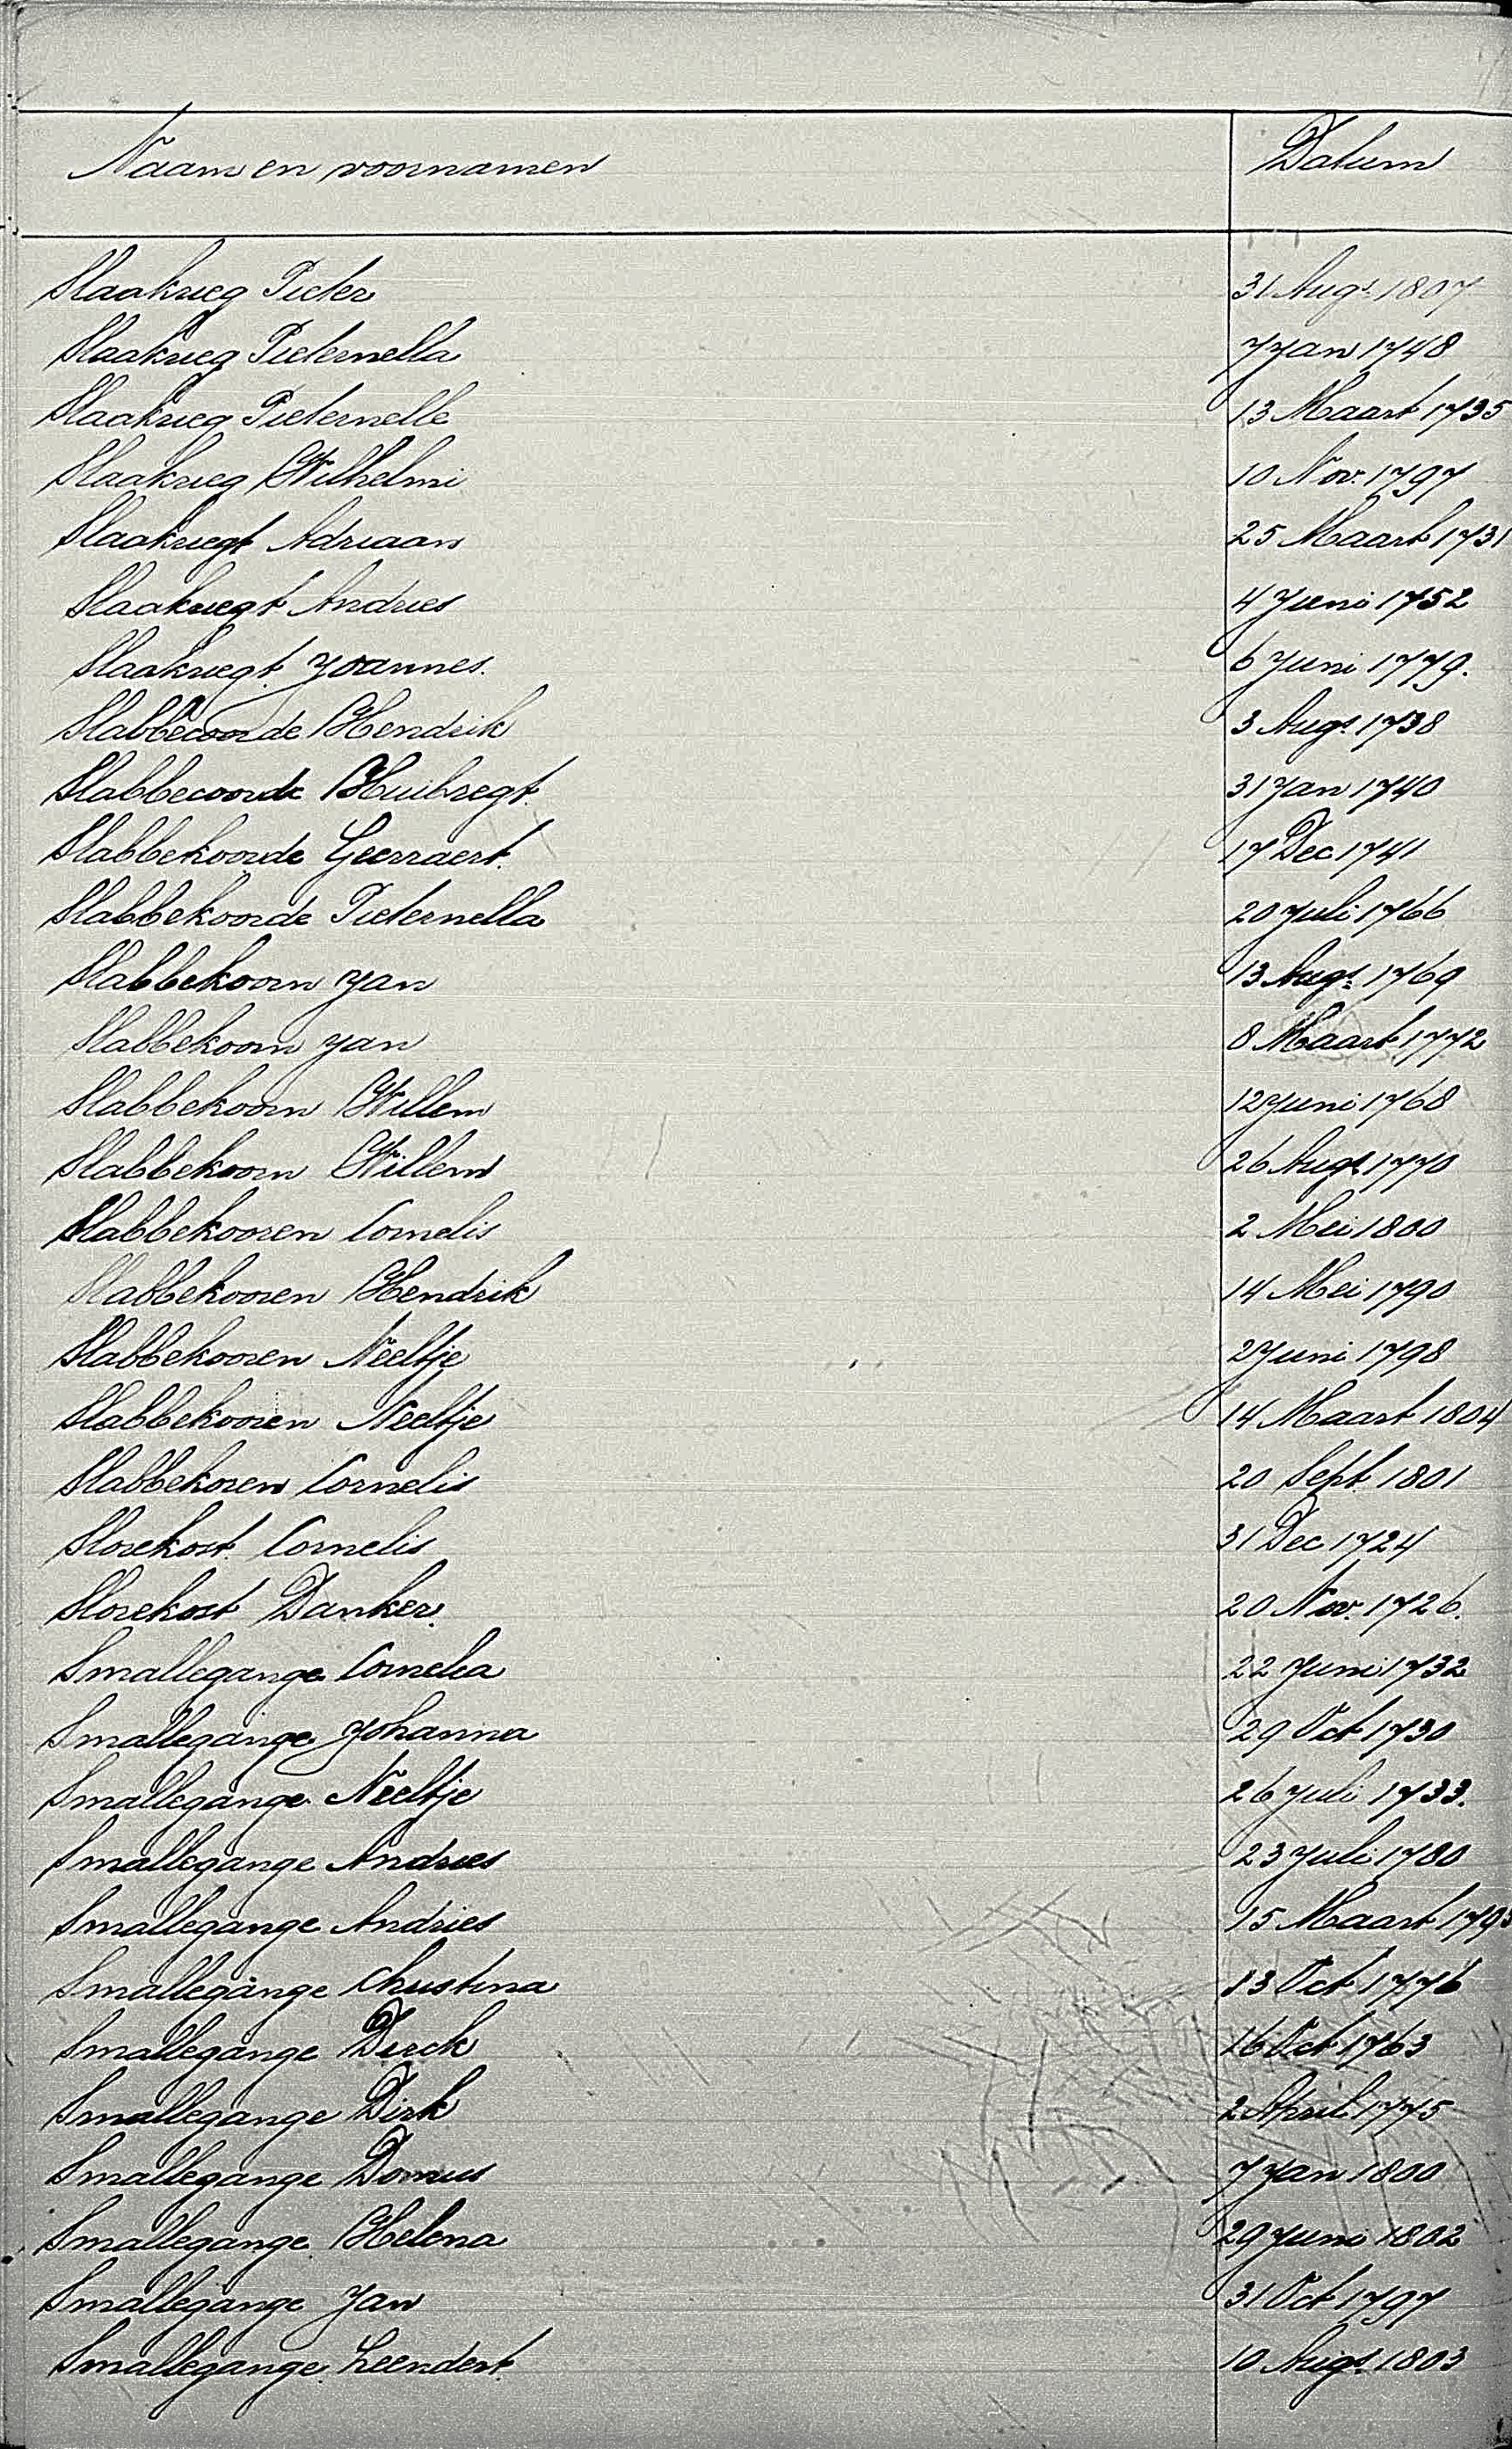 Naam en voornamen Datum
Slaakrieg Pieter 31 Augs. 1807
Slaakrieg Pieternella 7 Jan 1748
Slaakrieg Pieternelle 13 Maart 1735
Slaakrieg Wilhelmi 10 Nov. 1797
Slaakriegt Adriaan 25 Maart 1731
Slaakriegt Andries 4 Juni 1752
Slaakriegt Joannes. 6 Juni 1779.
Slabbecoorde Hendrik 3 Augs. 1738
Slabbecoorde Huibregt. 31 Jan 1740
Slabbekoorde Geerraert. 17 Dec 1741
Slabbekoorde Pieternella 20 Juli 1766
Slabbekoorn Jan 13 Augs. 1769
Slabbekoorn Jan 8 Maart 1772
Slabbekoorn Willem 12 Juni 1768
Slabbekoorn Willem 26 Augs. 1770
Slabbekooren Cornelis 2 Mei 1800
Slabbekooren Hendrik 14 Mei 1790
Slabbekooren Neeltje 2 Juni 1798
Slabbekooren Neeltje 14 Maart 1804
Slabbekoren Cornelis 20 Sept. 1801
Slorekost. Cornelis 31 Dec 1724
Slorekost Danker. 20 Nov. 1726.
Smallegange Cornelia 22 Juni 1732
Smallegange Johanna 29 Oct 1730
Smallegange Neeltje 26 Juli 1733.
Smallegange Andries 23 Juli 1780
Smallegange Andries 15 Maart
Smallegange Christina 13 Oct 1776
Smallegange Dirck 16 Oct 1763
Smallegange Dirk 2 April 1775
Smallegange Domus 7 Jan 1800
Smallegange Helena 29 Juni 1802
Smallegange Jan 31 Oct 1797
Smallegange Leendert. 10 Augs. 1803